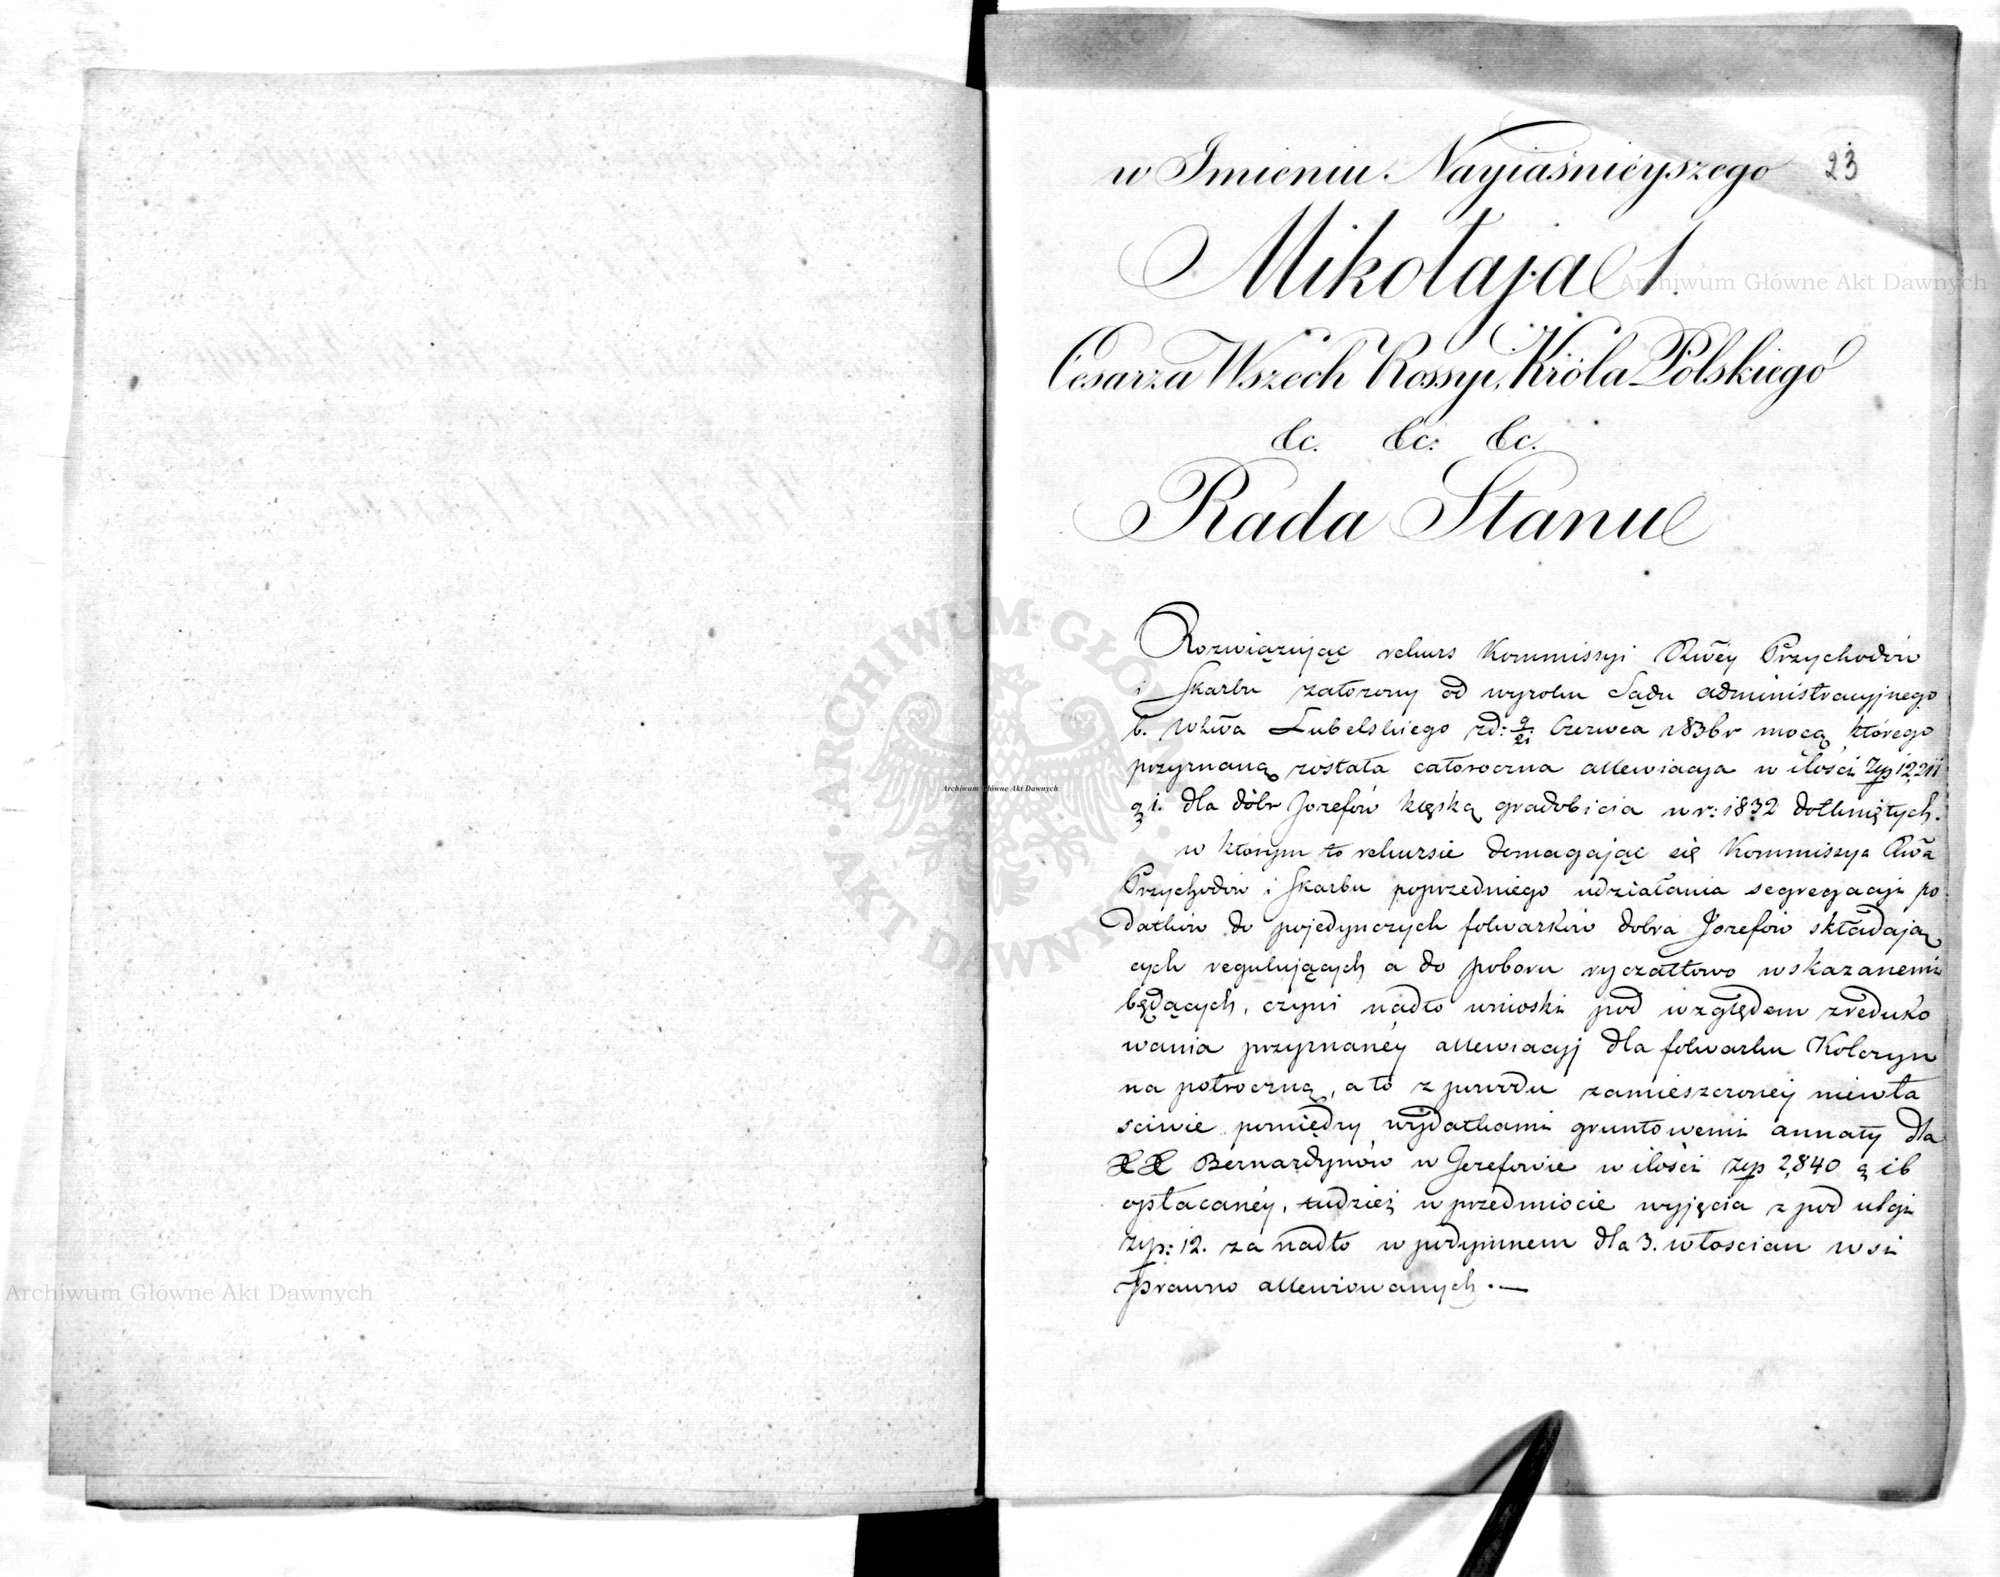 23
w Imieniu Nayiaśnieyszego
Mikołaja 1.
Cesarza Wszech Rossyi, Króla Polskiego
&c. &c: &c.
Rada Stanu
Rozwiązując rekurs Kommissyi Rzwéy Przychodów
i Skarbu założony od wyroku Sądu administracyjnego
b. Wztwa Lubelskiego zd: 9/21 Czerwca 1836 r mocą którego
przyznaną została całoroczna allewiacja w ilości Złp 12,211
g 1. dla dóbr Jozefów klęską gradobicia w r: 1832 dotkniętych.
w którym to rekursie domagając się Kommissya Rwa
Przychodów i Skarbu poprzedniego udziałania segregacji po
datków do pojedynczych folwarków dobra Jozefów składają
cych regulujących a do poboru ryczałtowo wskazanemi
będących, czyni nadto wnioski pod względem zreduko
wania przyznanéy allewiacyj dla folwarku Kolczyn
na półroczną, a to z powodu zamieszczonéy niewła
sciwie pomiędzy wydatkami gruntowemi annaty dla
XX Bernardynów w Jozefowie w ilości złp 2,840 g 16
opłacanéy, tudzież w przedmiocie wyjęcia z pod ulgi
złp: 12. za nadto w podymnem dla 3. włoscian wsi
Prawno allewiowanych. —
Archiwum Główne Akt Dawnych
Archiwum Główne Akt Dawnych
Archiwum Główne Akt Dawnych
ARCHIWUM GŁÓWNE AKT DAWNYCH